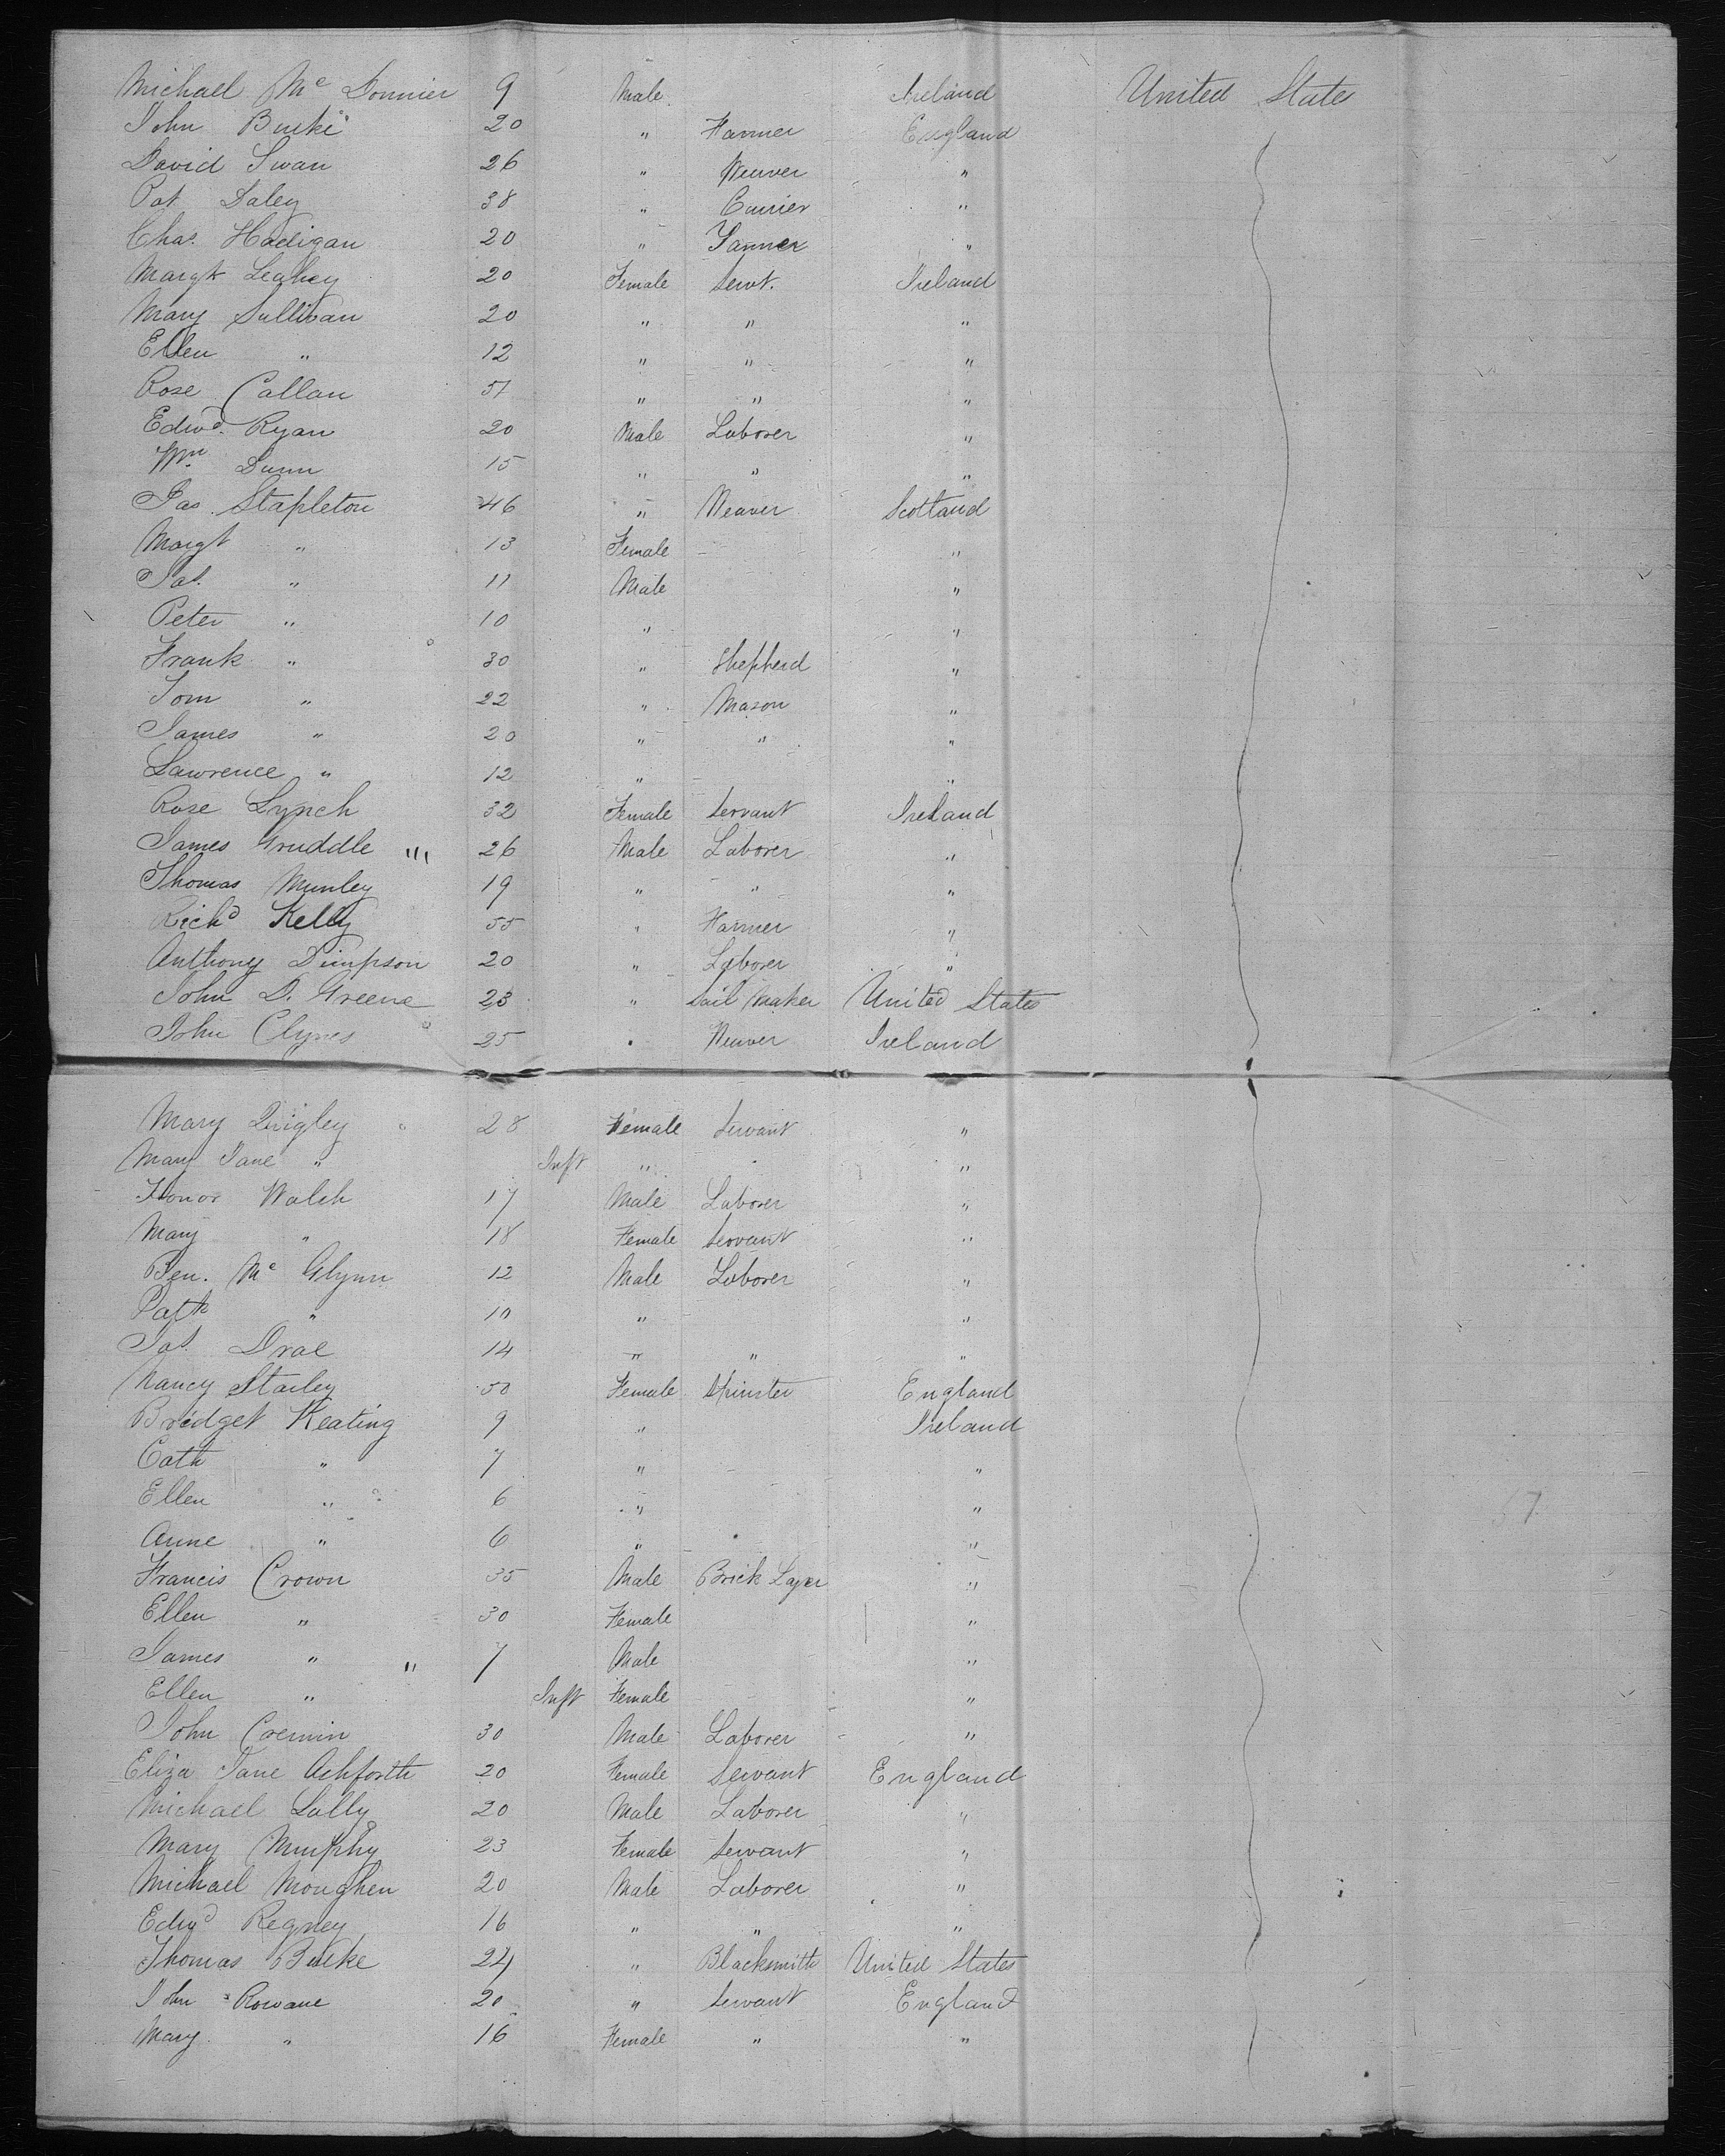 Michael Mc Donnier 9 Male Ireland United States
John Burke 20 " Farmer England
David Swan 26 " Weaver "
Pat Daley 38 " Currier "
Chas. Hadigan 20 " Tanner "
Margt Leahey 20 Female Servt. Ireland
Mary Sullivan 20 " " "
Ellen " 12 " " "
Rose Callan 57 " " "
Edwd. Ryan 20 Male Laborer "
Wm Dunn 15 " " "
Jas. Stapleton 46 " Weaver Scotland
Margt " 13 Female "
Pat. " 11 Male "
Peter " 10 " "
Frank " 30 " Shepherd "
Tom " 22 " Mason "
James " 20 " " "
Lawrence " 12 " "
Rose Lynch 32 Female Servant Ireland
James Gruddle 26 Male Laborer "
Thomas Munley 19 " " "
Richd Kelly 55 " Farmer "
Anthony Dimpson 20 " Laborer "
John D. Greene 23 " Sail Maker United States
John Clynes 25 " Weaver Ireland
Mary Quigley 28 Female Servant "
Mary Jane " Inft " "
Honor Walsh 17 Male Laborer "
Mary " 18 Female Servant "
Ben. Mc Glynn 12 Male Laborer "
Patk " 10 " "
Pat. Dral 14 " " "
Nancy Starley 50 Female Spinster England
Bridget Keating 9 " Ireland
Cath " 7 " "
Ellen " 6 " "
Anne " 6 " "
Francis Crown 35 Male Brick Layer "
Ellen " 30 Female "
James " 7 Male "
Ellen " Inft Female "
John Cremin 30 Male Laborer "
Eliza Jane Ashforth 20 Female Servant England
Michael Lally 20 Male Laborer "
Mary Murphy 23 Female Servant "
Michael Moughen 20 Male Laborer "
Edwd Regney 16 " " "
Thomas Burke 24 " Blacksmith United States
John Rowane 20 " Servant England
Mary " 16 Female " "